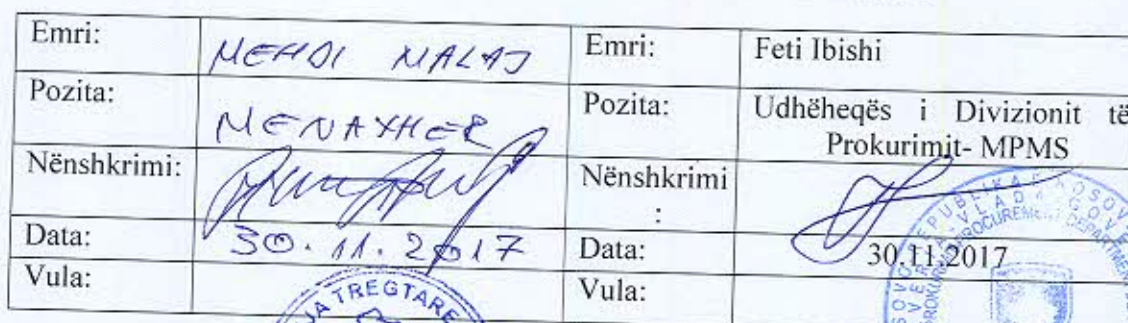 Emri: MEHDI MALAJ Emri: Feti Ibishi
Pozita: MENAXHER Pozita: Udhëheqës i Divizionit të
Prokurimit- MPMS
Nënshkrimi: Nënshkrimi
:
Data: 30.11.2017 Data: 30.11.2017
Vula: Vula:
TREGTARE